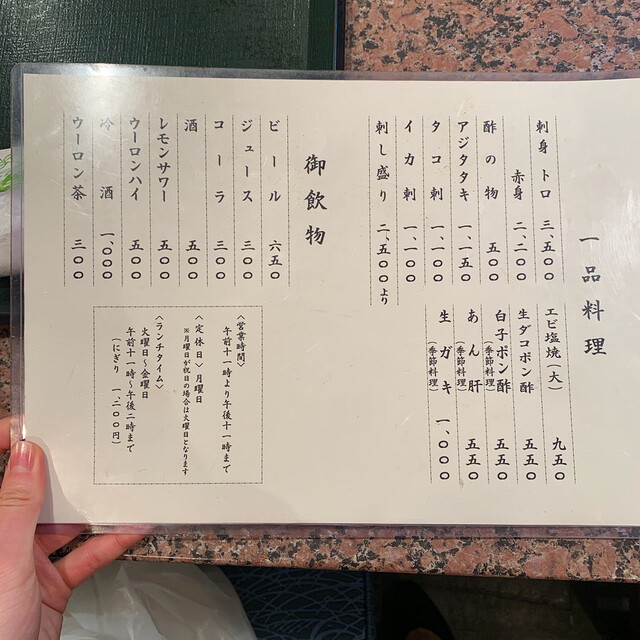 一品料理
刺身 トロ 三、五〇〇
赤身 二、二〇〇
酢の物 五〇〇
アジタタキ 一、一五〇
タコ刺 一、一〇〇
イカ刺 一、一〇〇
刺し盛り 二、五〇〇より
エビ塩焼(大) 九五〇
生ダコポン酢 五五〇
白子ポン酢(季節料理) 五五〇
あん肝(季節料理) 五五〇
生ガキ(季節料理) 一、〇〇〇
御飲物
ビール 六五〇
ジュース 三〇〇
コーラ 三〇〇
酒 五〇〇
レモンサワー 五〇〇
ウーロンハイ 五〇〇
冷酒 一、〇〇〇
ウーロン茶 三〇〇
〈営業時間〉
午前十一時より午後十一時まで
〈定休日〉月曜日
※月曜日が祝日の場合は火曜日となります
〈ランチタイム〉
火曜日〜金曜日
午前十一時〜午後二時まで
(にぎり 一、二〇〇円)